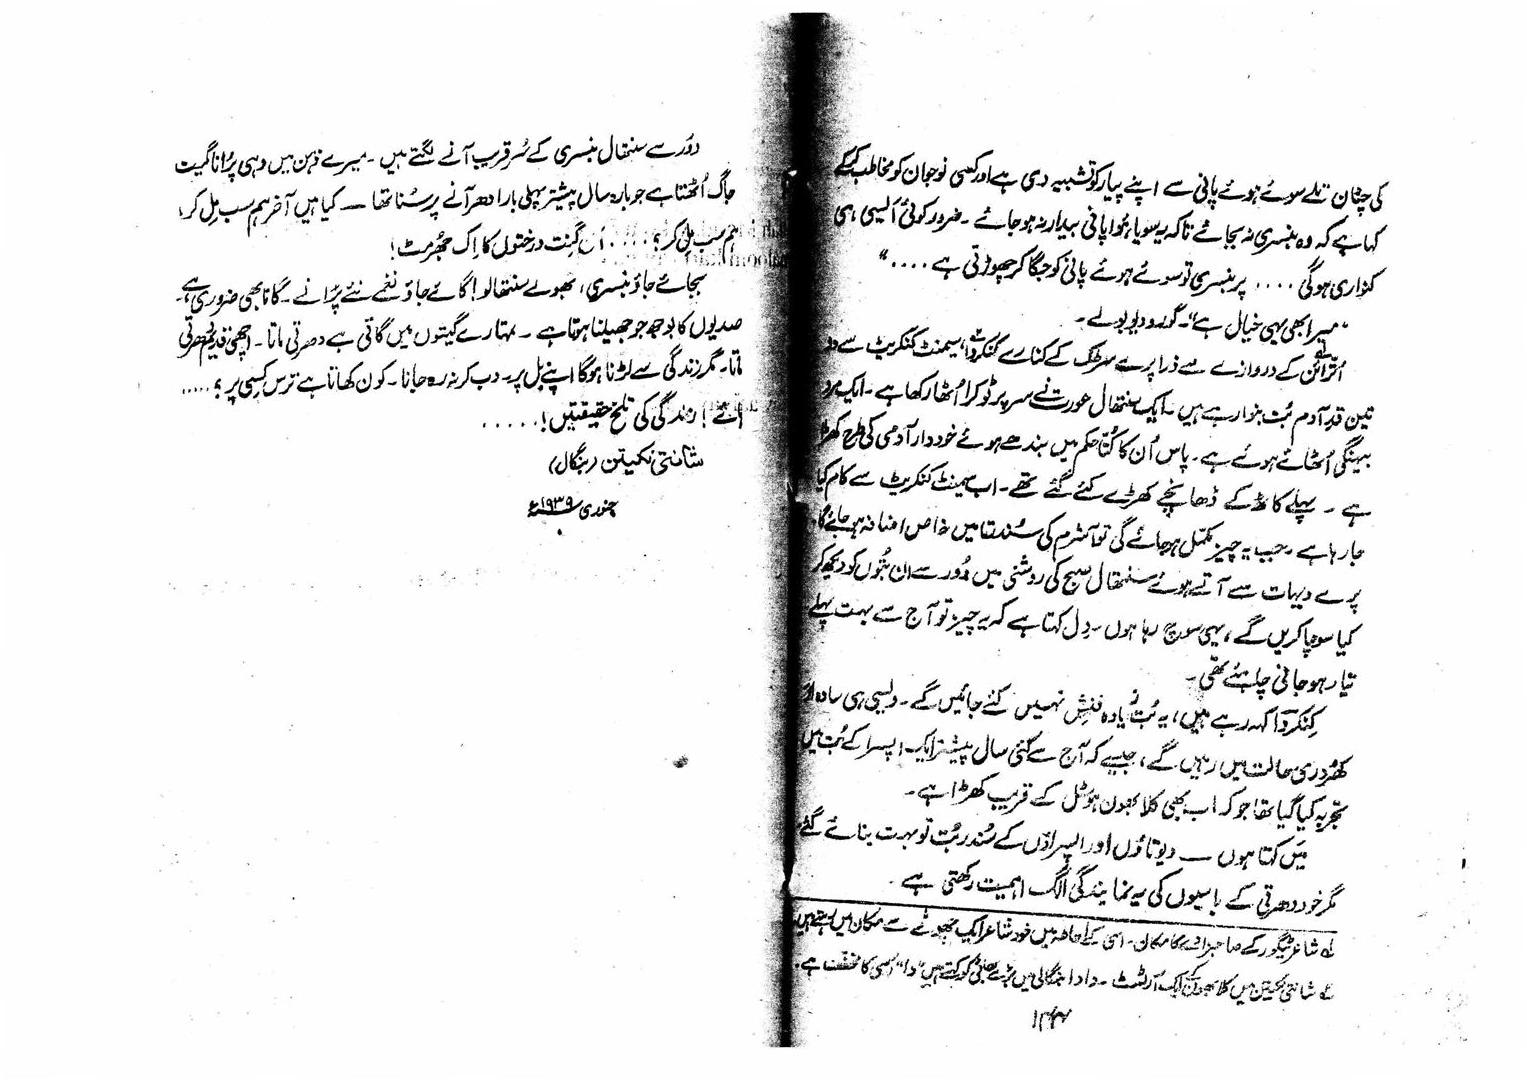 کی چٹان تلے سوئے ہوئے پانی سے اپنے پیار کو تشبیہ دی ہے اور کسی نوجوان کو مخاطب کرکے
کہا ہے کہ وہ بنسری نہ بجائے تاکہ یہ سویا ہُوا پانی بیدار نہ ہو جائے ۔ ضرور کوئی ایسی ہی
کنواری ہوگی .... پر بنسری تو سوئے ہوئے پانی کو جگا کر چھوڑتی ہے ...."
"میرا بھی یہی خیال ہے" ۔ گورودیو بولے ۔
اُترائن کے دروازے سے ذرا پرے سڑک کے کنارے کنکردا، سیمنٹ کنکریٹ سے دو
تین قدِ آدم بُت بنوا رہے ہیں ۔ ایک سنتھال عورت نے سر پر ٹوکرا اُٹھا رکھا ہے ۔ ایک مرد
بہینگی اُٹھائے ہوئے ہے ۔ پاس اُن کا کُتّا حکم میں بندھے ہوئے خوددار آدمی کی طرح کھڑا
ہے ۔ پہلے کاٹھ کے ڈھانچے کھڑے کئے گئے تھے ۔ اب سیمنٹ کنکریٹ سے کام کیا
جا رہا ہے ۔ جب یہ چیز مکمّل ہو جائے گی تو آشرم کی سُندرتا میں خاص اضافہ ہو جائے گا
پرے دیہات سے آتے ہوئے سنتھال صبح کی روشنی میں دُور سے ان بُتوں کو دیکھ کر
کیا سوچا کریں گے، یہی سوچ رہا ہوں ۔ دِل کہتا ہے کہ یہ چیز تو آج سے بہت پہلے
تیار ہو جانی چاہئے تھی ۔
کِنکردا کہہ رہے ہیں، یہ بُت زیادہ فنش نہیں کئے جائیں گے ۔ ویسی ہی سادہ اور
کھُردری حالت میں رہیں گے، جیسے کہ آج سے کئی سال پیشتر ایک اپسرا کے بُت میں
تجربہ کیا گیا تھا جو کہ اب بھی کلا بھون ہوٹل کے قریب کھڑا ہے ۔
مَیں کہتا ہوں — دیوتاؤں اور اپسراؤں کے سُندر بُت تو بہت بنائے گئے
مگر خود دھرتی کے باسیوں کی یہ نمایندگی الگ اہمیت رکھتی ہے ۔
لے شاعر ٹیگور کے صاحبزادے کا مکان ۔ اسی کے احاطہ میں خود شاعر ایک چھوٹے سے مکان میں رہتے ہیں
ے شانتی نکیتن میں کلا بھون کے ایک آرٹسٹ ۔ دادا بنگالی میں بڑے بھائی کو کہتے ہیں "دا" اسی کا مخفف ہے ۔
دُور سے سنتھال بنسری کے سُر قریب آنے لگتے ہیں ۔ میرے ذہن میں وہی پُرانا گیت
جاگ اُٹھتا ہے جو بارہ سال پیشتر پہلی بار ادھر آنے پر سُنا تھا — کیا ہیں آخر ہم سب مِل کر،
ہم سب مِل کر؟ .... اَن گِنت درختوں کا اِک جھُرمٹ!
بجائے جاؤ بنسری، بھولے سنتھالو! گائے جاؤ نغمے نئے پُرانے ۔ گانا بھی ضروری ہے ۔
صدیوں کا بوجھ جو جھیلنا ہوتا ہے ۔ تمہارے گیتوں میں گاتی ہے دھرتی ماتا ۔ اچھی قدیم دھرتی
ماتا ۔ مگر زندگی سے لڑنا ہوگا اپنے بَل پر ۔ دب کر نہ رہ جانا ۔ کون کھاتا ہے ترس کِسی پر؟ .....
زندگی کی تلخ حقیقتیں! .....
شانتی نکیتن (بنگال)
جنوری ۱۹۳۹ء